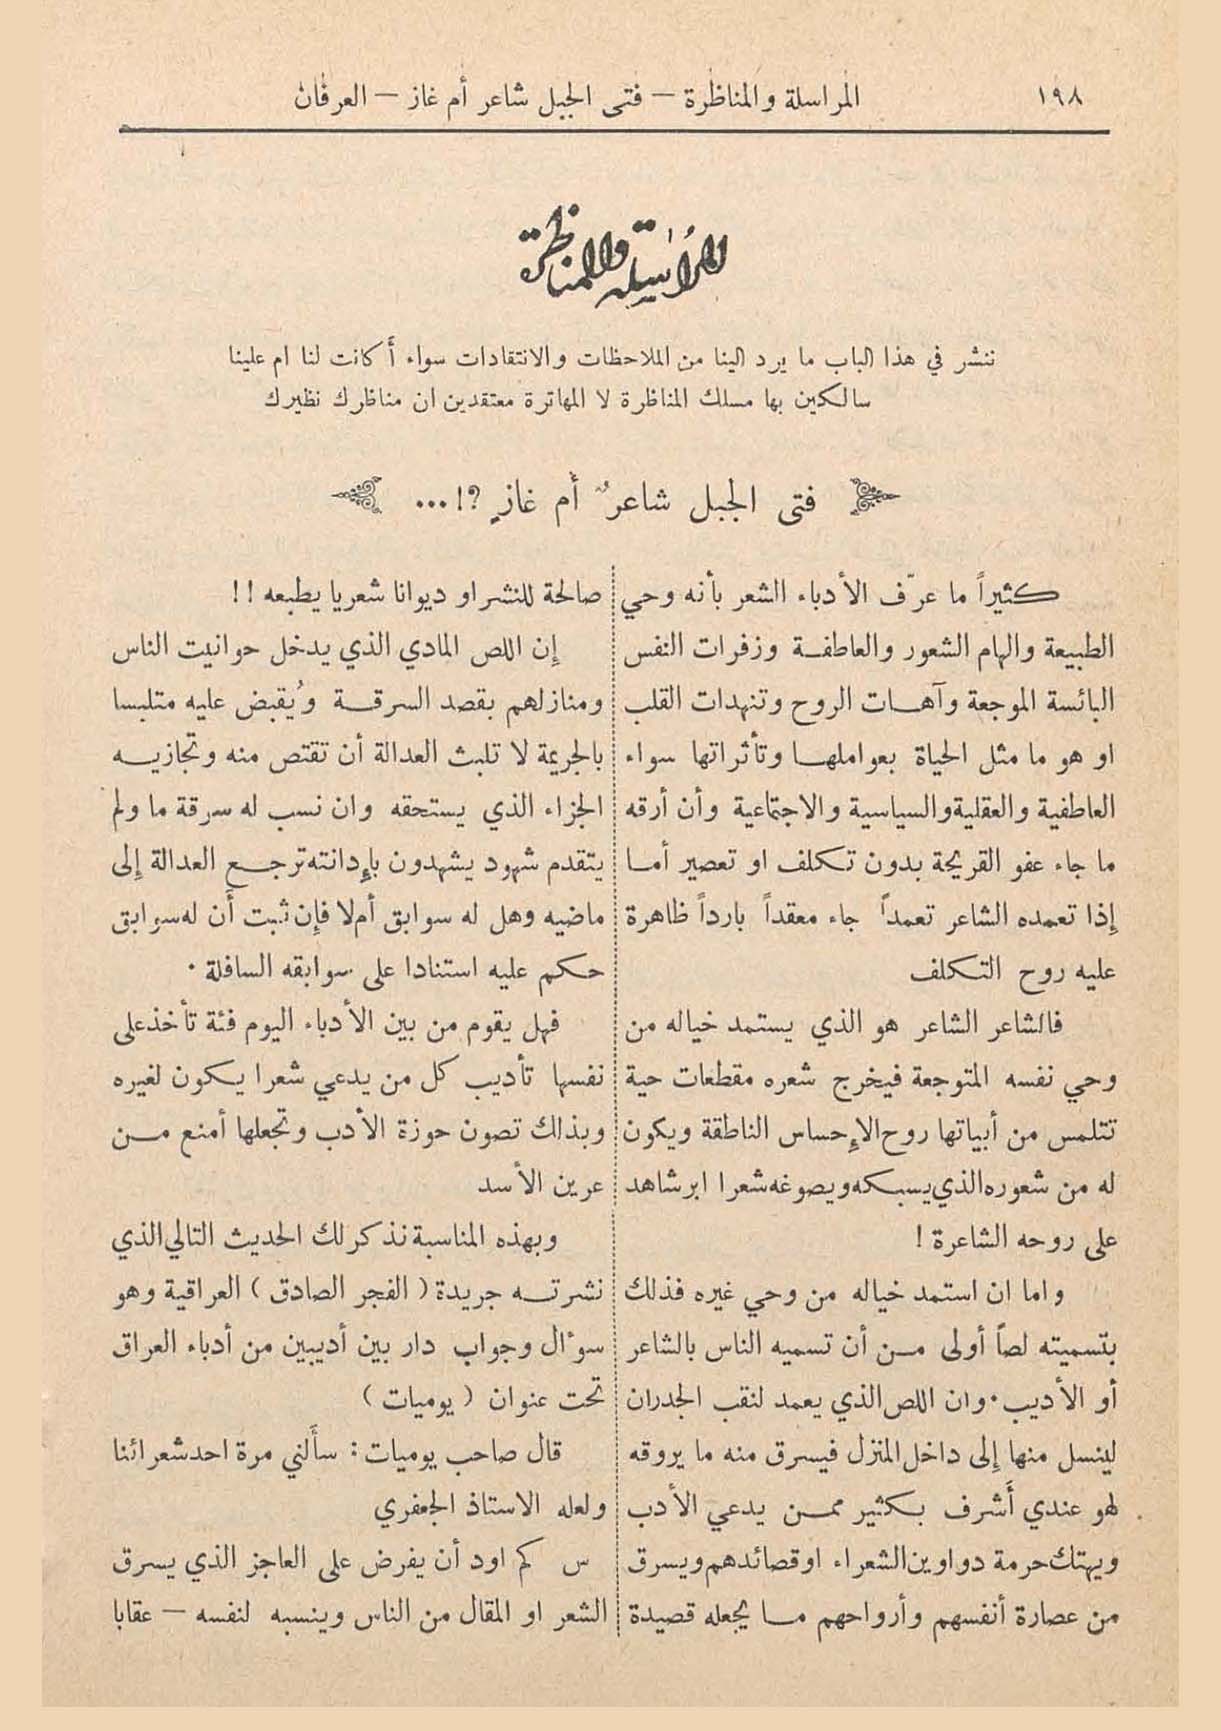 ١٩٨
المراسلة والمناظرة — فتى الجبل شاعر أم غاز — العرفان
المراسلة والمناظرة
ننشر في هذا الباب ما يرد الينا من الملاحظات والانتقادات سواء أكانت لنا ام علينا
سالكين بها مسلك المناظرة لا المهاترة معتقدين ان مناظرك نظيرك
فتى الجبل شاعرٌ أم غازٍ ?!...
كثيراً ما عرّف الأدباء الشعر بأنه وحي
الطبيعة والهام الشعور والعاطفة وزفرات النفس
البائسة الموجعة وآهات الروح وتنهدات القلب
او هو ما مثل الحياة بعواملها وتأثراتها سواء
العاطفية والعقلية والسياسية والاجتماعية وأن أرقه
ما جاء عفو القريحة بدون تكلف او تعصير أما
إذا تعمده الشاعر تعمداً جاء معقداً بارداً ظاهرة
عليه روح التكلف
فالشاعر الشاعر هو الذي يستمد خياله من
وحي نفسه المتوجعة فيخرج شعره مقطعات حية
تتلمس من أبياتها روح الإحساس الناطقة ويكون
له من شعوره الذي يسبكه ويصوغه شعرا ابر شاهد
على روحه الشاعرة !
واما ان استمد خياله من وحي غيره فذلك
بتسميته لصاً أولى من أن تسميه الناس بالشاعر
أو الأديب . وان اللص الذي يعمد لنقب الجدران
لينسل منها إلى داخل المنزل فيسرق منه ما يروقه
لهو عندي أشرف بكثير ممن يدعي الأدب
ويهتك حرمة دواوين الشعراء او قصائدهم ويسرق
من عصارة أنفسهم وأرواحهم ما يجعله قصيدة
صالحة للنشر او ديوانا شعريا يطبعه !!
إن اللص المادي الذي يدخل حوانيت الناس
ومنازلهم بقصد السرقة ويُقبض عليه متلبسا
بالجريمة لا تلبث العدالة أن تقتص منه وتجازيه
الجزاء الذي يستحقه وان نسب له سرقة ما ولم
يتقدم شهود يشهدون بإدانته ترجع العدالة إلى
ماضيه وهل له سوابق أم لا فإن ثبت أن له سوابق
حكم عليه استنادا على سوابقه السافلة .
فهل يقوم من بين الأدباء اليوم فئة تأخذ على
نفسها تأديب كل من يدعي شعرا يكون لغيره
وبذلك تصون حوزة الأدب وتجعلها أمنع من
عرين الأسد
وبهذه المناسبة نذكر لك الحديث التالي الذي
نشرته جريدة ( الفجر الصادق ) العراقية وهو
سوءال وجواب دار بين أديبين من أدباء العراق
تحت عنوان ( يوميات )
قال صاحب يوميات : سألني مرة احد شعرائنا
ولعله الاستاذ الجعفري
س كم اود أن يفرض على العاجز الذي يسرق
الشعر او المقال من الناس وينسبه لنفسه — عقابا